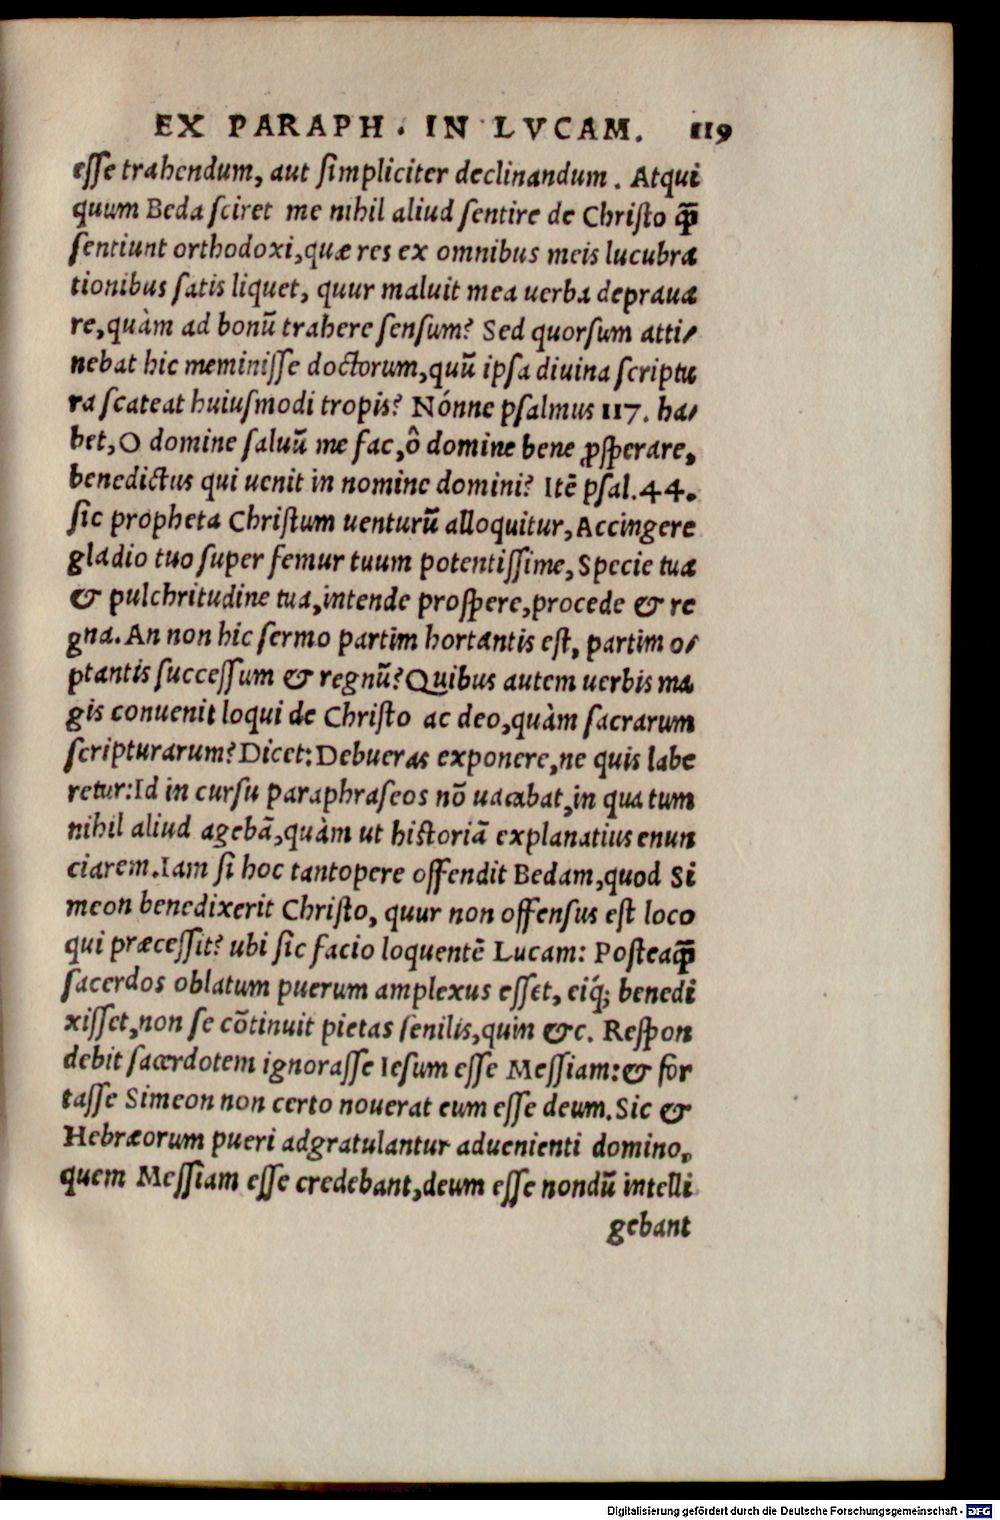 EX PARAPH. IN LVCAM. 119
esse trahendum, aut simpliciter declinandum. Atqui
quum Beda sciret me nihil aliud sentire de Christo q̄
sentiunt orthodoxi, quæ res ex omnibus meis lucubra
tionibus satis liquet, quur maluit mea uerba deprauа
re, quàm ad bonū trahere sensum? Sed quorsum atti-
nebat hic meminisse doctorum, quū ipsa diuina scriptu
ra scateat huiusmodi tropis? Nónne psalmus 117. ha-
bet, O domine saluū me fac, ô domine bene ꝓsperare,
benedictus qui uenit in nomine domini? Itē psal. 44.
sic propheta Christum uenturū alloquitur, Accingere
gladio tuo super femur tuum potentissime, Specie tua
& pulchritudine tua, intende prospere, procede & re
gna. An non hic sermo partim hortantis est, partim o-
ptantis successum & regnū? Quibus autem uerbis ma
gis conuenit loqui de Christo ac deo, quàm sacrarum
scripturarum? Dicet: Debueras exponere, ne quis labe
retur: Id in cursu paraphraseos nō uacabat, in qua tum
nihil aliud agebā, quàm ut historiā explanatius enun
ciarem. Iam si hoc tantopere offendit Bedam, quod Si
meon benedixerit Christo, quur non offensus est loco
qui præcessit? ubi sic facio loquentē Lucam: Posteaq̄
sacerdos oblatum puerum amplexus esset, eiq́; benedi
xisset, non se cōtinuit pietas senilis, quin &c. Respon
debit sacerdotem ignorasse Iesum esse Messiam: & for
tasse Simeon non certo nouerat eum esse deum. Sic &
Hebræorum pueri adgratulantur aduenienti domino,
quem Messiam esse credebant, deum esse nondū intelli
gebant
Digitalisierung gefördert durch die Deutsche Forschungsgemeinschaft - DFG